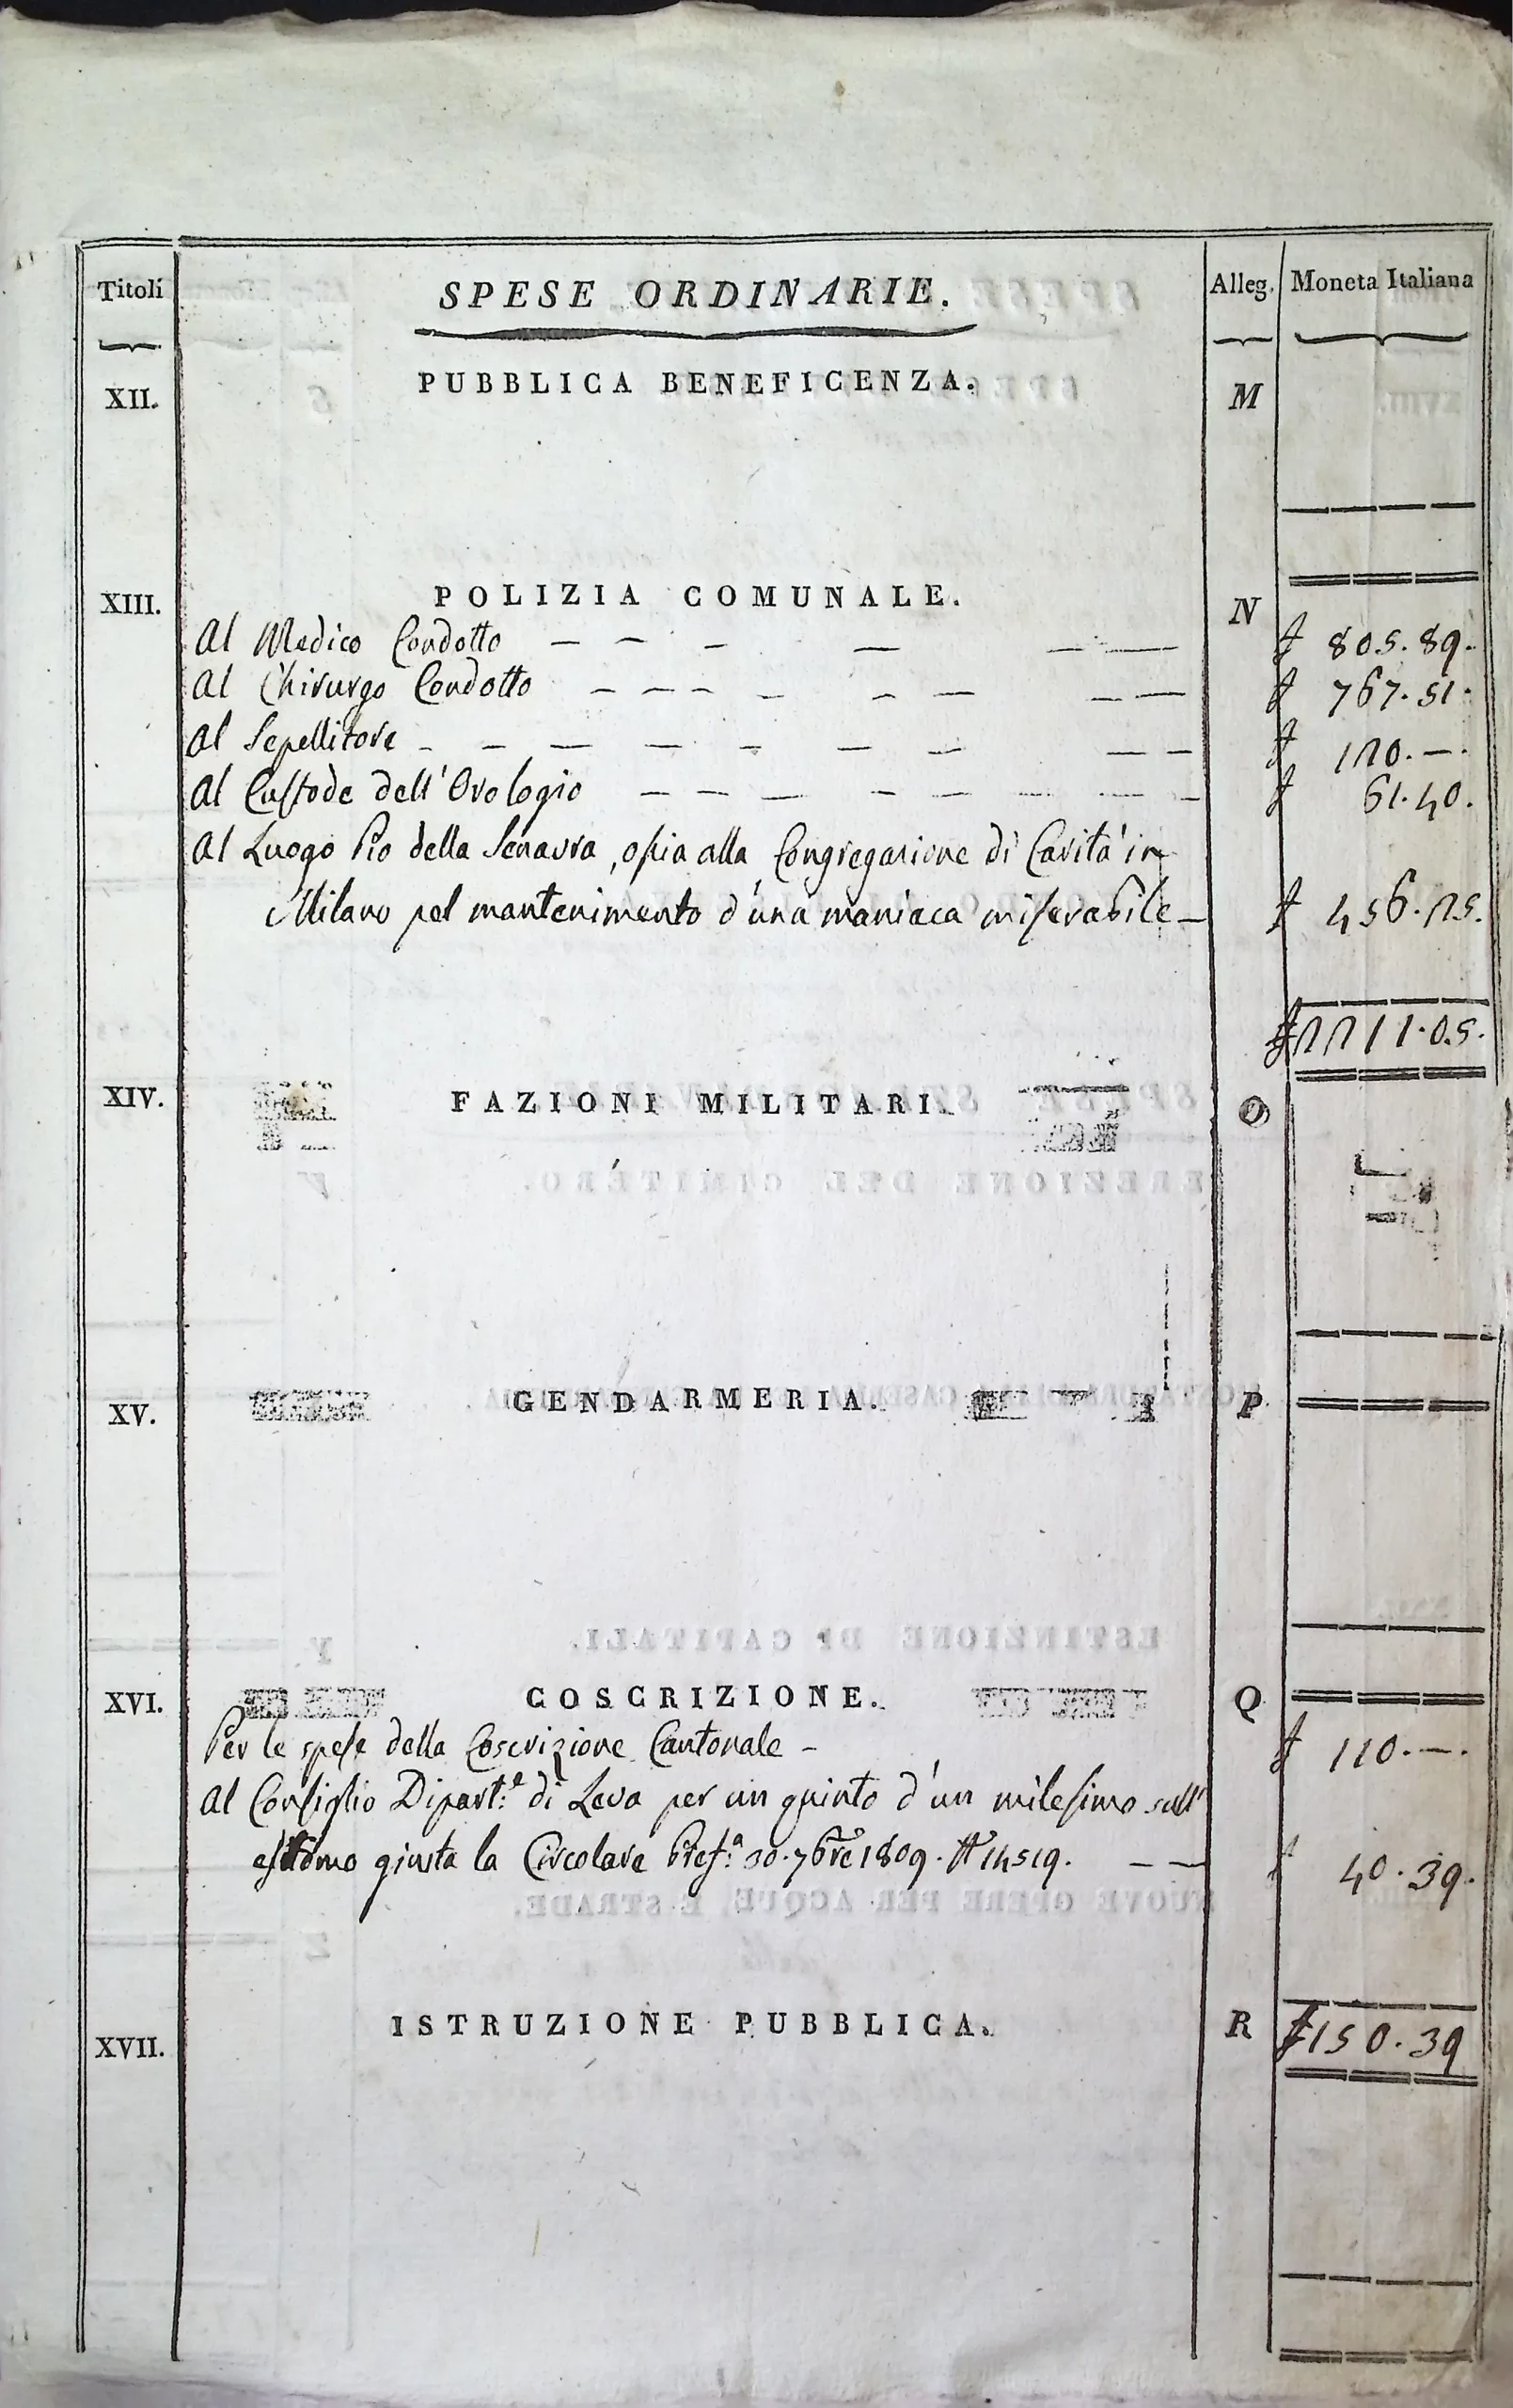 Titoli SPESE ORDINARIE. Alleg. Moneta Italiana
XII. PUBBLICA BENEFICENZA. M
XIII. POLIZIA COMUNALE. N
Al Medico Condotto — — — — — — £ 805.89.
Al Chirurgo Condotto — — — — — — — — £ 767.51.
Al Sepellitore — — — — — — — — — £ 120.—.
Al Custode dell'Orologio — — — — — — — — £ 61.40.
Al Luogo Pio della Senavra, ossia alla Congregazione di Carità in
Milano pel mantenimento d'una maniaca miserabile — £ 456.25.
£ 2211.05.
XIV. FAZIONI MILITARI. O
XV. GENDARMERIA. P
XVI. COSCRIZIONE. Q
Per le spese della Coscrizione Cantonale — £ 110.—.
Al Consiglio Dipart.e di Leva per un quinto d'un milesimo sull'
estimo giusta la Circolare Pref.a 30. 7bre 1809. N° 14519. — — £ 40.39.
£ 150.39
XVII. ISTRUZIONE PUBBLICA. R